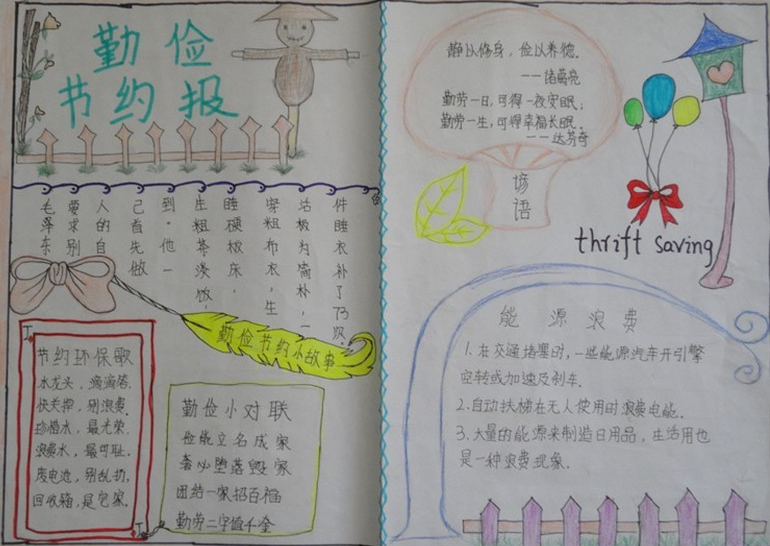 勤俭
节约报
毛泽东
要求别
人的自
己首先做
到.他一
生粗茶淡饭,
睡硬板床,
穿粗布衣,生
活极为简朴,一
件睡衣补了73次.
勤俭节约小故事
节约环保歌
水龙头,滴滴答.
快关掉,别浪费.
珍惜水,最光荣.
浪费水,最可耻.
废电池,别乱扔,
回收箱,是它家.
勤俭小对联
俭能立名成家
奢必堕落毁家
团结一家招百福
勤劳二字值千金
静以修身,俭以养德.
——诸葛亮
勤劳一日,可得一夜安眠;
勤劳一生,可得幸福长眠.
——达芬奇
谚语
thrift saving
能源浪费
1.在交通堵塞时,一些能源汽车开引擎
空转或加速及刹车.
2.自动扶梯在无人使用时浪费电能.
3.大量的能源来制造日用品,生活用也
是一种浪费现象.